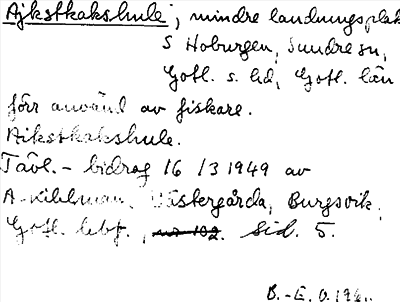 Ajkstkakshule; mindre landningsplats
S Hoburgen, Sundre sn,
Gotl. s. hd, Gotl. län
förr använd av fiskare.
Aikstkakshule.
Tävl.-bidrag 16/3 1949 av
A. Västergårda, Burgsvik.
Gotl. sid. 5.
B.-E. O.